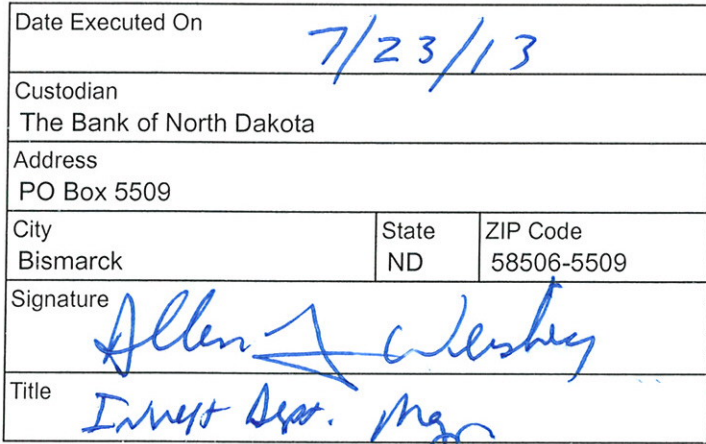 Date Executed On
7/23/13
Custodian
The Bank of North Dakota
Address
PO Box 5509
City State ZIP Code
Bismarck ND 58506-5509
Signature
Allen
Title
Invest Dept. Mgr